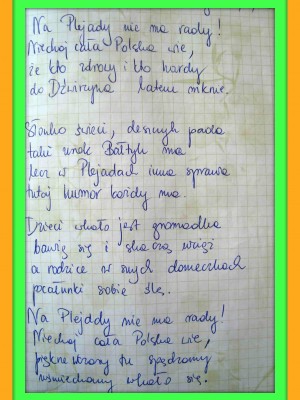 Na Plejady nie ma rady!
Niechaj cała Polska wie,
że kto zdrowy i kto hardy
do Dźwirzyna latem mknie.
Słonko świeci, deszcz pada
taki urok Bałtyk ma
lecz w Plejadach inna sprawa
tutaj humor każdy ma.
Dzieci wkoło jest gromadka
bawią się i skaczą wciąż
a rodzice w swych domeczkach
pocałunki sobie ślą.
Na Plejady nie ma rady!
Niechaj cała Polska wie,
piękne wczasy tu spędzamy
uśmiechamy wkoło się.